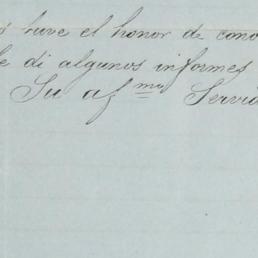 s tuve el honor de cono
le di algunos informes
Su af.mo Servid